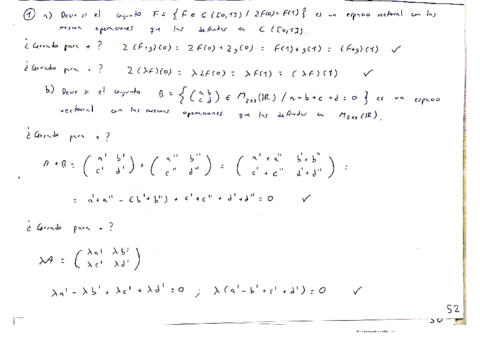 ① a) Decir si el conjunto F = { f ∈ C([0,1]) / 2f(0) = f(1) } es un espacio vectorial con las
mismas operaciones que las definidas en C([0,1]).
¿Cerrado para + ? 2(f+g)(0) = 2f(0) + 2g(0) = f(1) + g(1) = (f+g)(1) ✓
¿Cerrado para · ? 2(λf)(0) = λ2f(0) = λf(1) = (λf)(1) ✓
b) Decir si el conjunto B = { (a b; c d) ∈ M2x2(IR) / a-b+c+d=0 } es un espacio
vectorial con las mismas operaciones que las definidas en M2x2(IR).
¿Cerrado para + ?
A + B = (a' b'; c' d') + (a'' b''; c'' d'') = (a'+a'' b'+b''; c'+c'' d'+d'') =
= a'+a'' - (b'+b'') + c'+c'' + d'+d'' = 0 ✓
¿Cerrado para · ?
λA = (λa' λb'; λc' λd')
λa' - λb' + λc' + λd' = 0 ; λ(a'-b'+c'+d') = 0 ✓
52